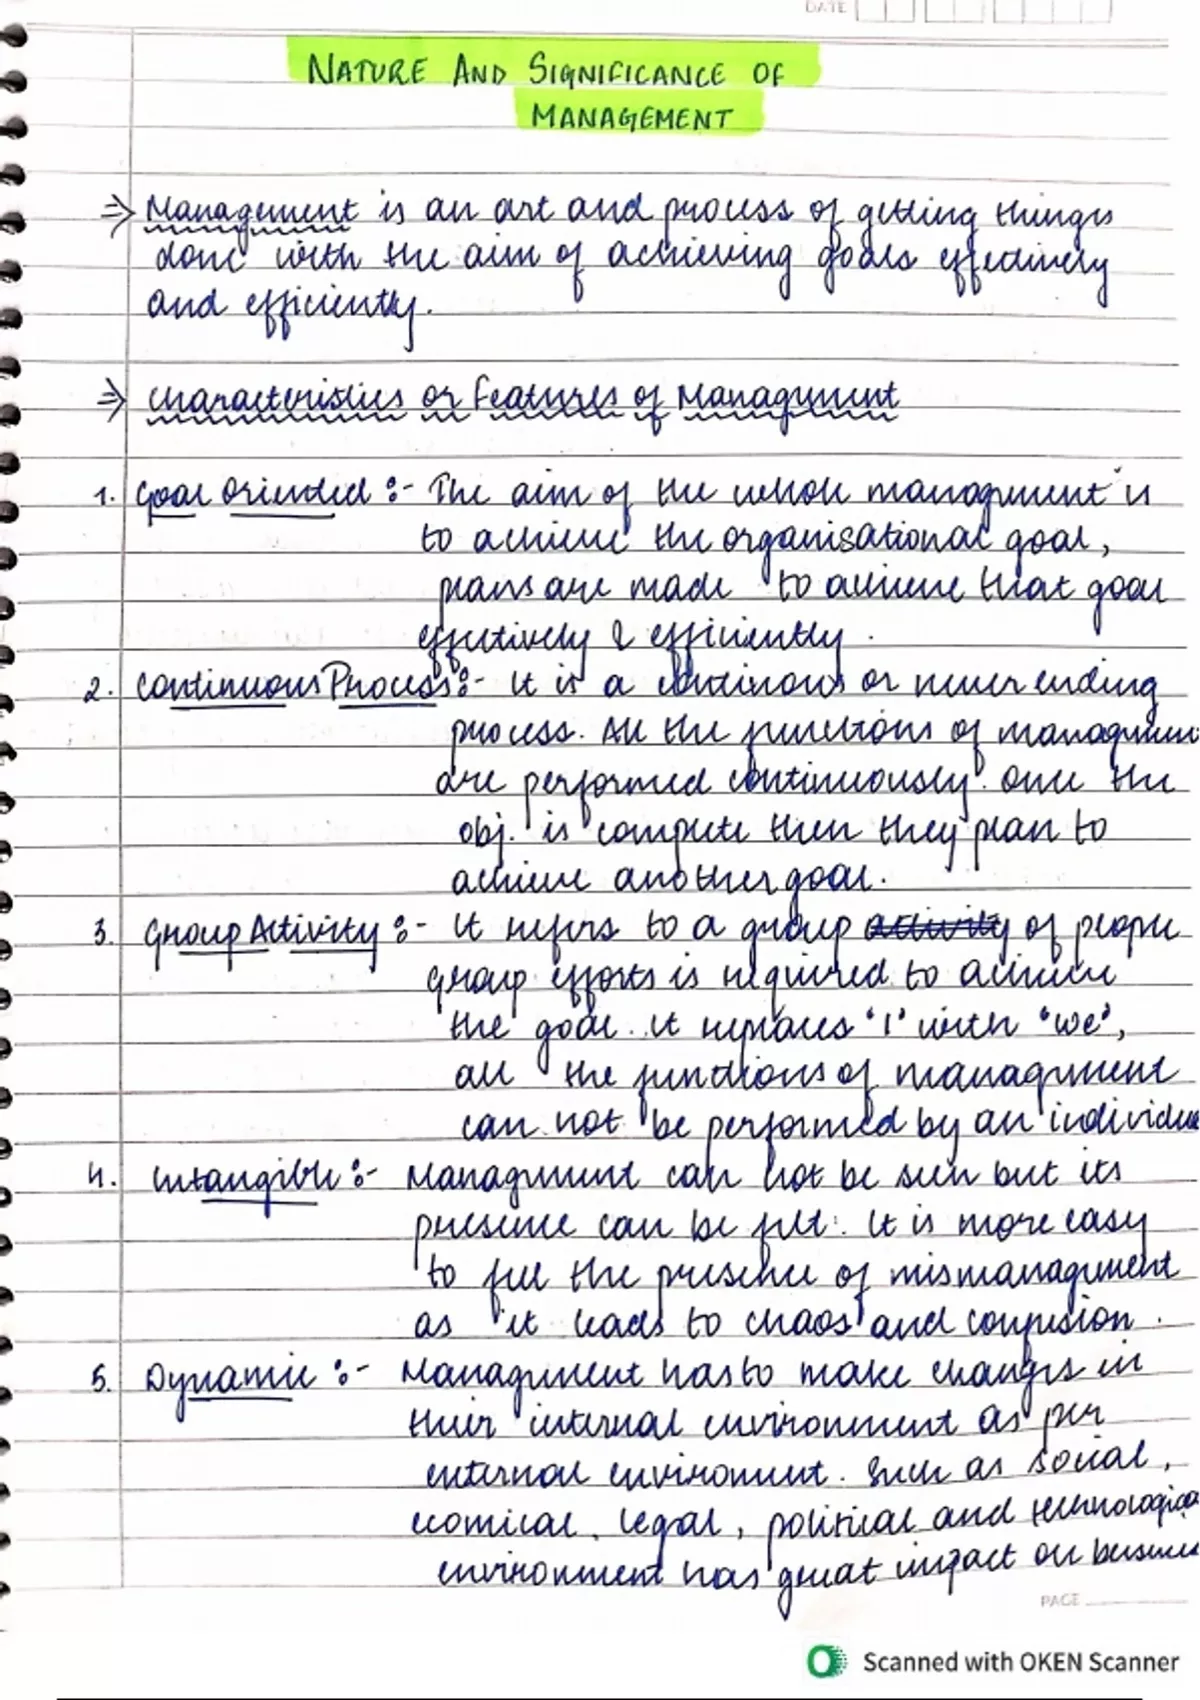 DATE
NATURE AND SIGNIFICANCE OF
MANAGEMENT
⇒ Management is an art and process of getting things
done with the aim of achieving goals effectively
and efficiently.
⇒ Characteristics or Features of Management
1. Goal Oriented :- The aim of the whole management is
to achieve the organisational goal,
plans are made to achieve that goal
effectively & efficiently.
2. Continuous Process :- It is a continous or never ending
process. All the functions of managemen
are performed continuously. once the
obj. is complete then they plan to
achieve another goal.
3. Group Activity :- It refers to a group activity of people
group efforts is required to achieve
the goal. It replaces 'I' with 'we',
all the functions of management
can not be performed by an individua
4. Intangible :- Management can not be seen but its
presence can be felt. It is more easy
to feel the presence of mismanagement
as it leads to chaos and confusion.
5. Dynamic :- Management has to make changes in
their internal environment as per
external environment. Such as social,
ecomical, legal, political and technologica
environment has great impact on business
PAGE
Scanned with OKEN Scanner